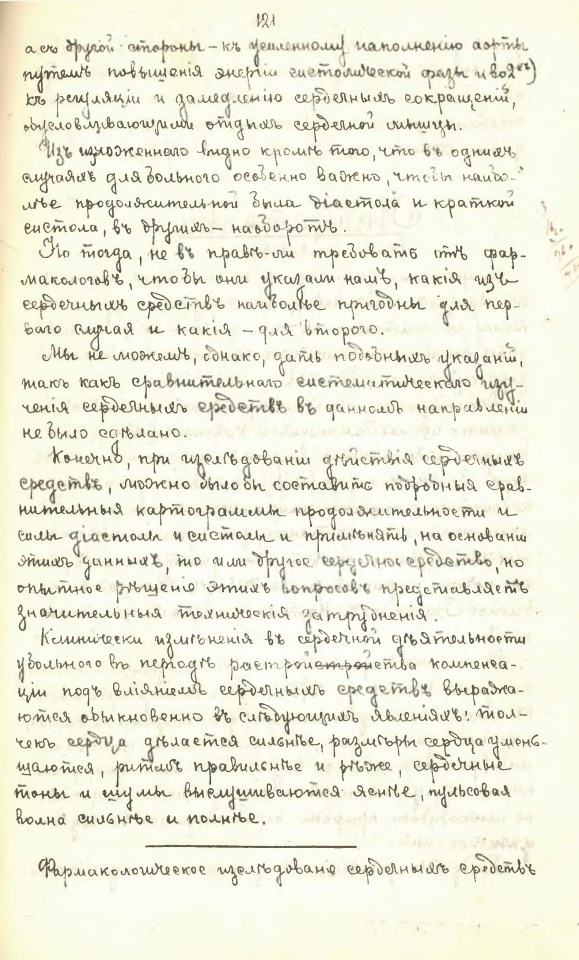 121
а съ другой стороны – къ усиленному наполненію аорты
путемъ повышенія энергіи систолической фазы и во 2хъ)
къ регуляціи и замедленію сердечныхъ сокращеній,
обусловливающими отдыхъ сердечной мышцы.
Изъ изложеннаго видно кромѣ того, что въ однихъ
случаяхъ для больного особенно важно, чтобы наибо-
лѣе продолжительной была діастола и краткой
систола, въ другихъ – наоборотъ.
Но тогда, не въ правѣ-ли требовать отъ фар-
макологовъ, чтобы они указали намъ, какія изъ
сердечныхъ средствъ наиболѣе пригодны для пер-
ваго случая и какія – для второго.
Мы не можемъ, однако, дать подобныхъ указаній,
такъ какъ сравнительнаго систематическаго изу-
ченія сердечныхъ средствъ въ данномъ направленіи
не было сдѣлано.
Конечно, при изслѣдованіи дѣйствія сердечныхъ
средствъ, можно было бы составить подробныя срав-
нительныя картограммы продолжительности и
силы діастолы и систолы и примѣнять, на основаніи
этихъ данныхъ, то или другое сердечное средство, но
опытное рѣшеніе этихъ вопросовъ представляетъ
значительныя техническія затрудненія.
Клинически измѣненія въ сердечной дѣятельности
у больного въ періодѣ растройстройства компенса-
ціи подъ вліяніемъ сердечныхъ средствъ выража-
ются обыкновенно въ слѣдующихъ явленіяхъ: тол-
чекъ сердца дѣлается сильнѣе, размѣры сердца умень-
шаются, ритмъ правильнѣе и рѣже, сердечные
тоны и шумы выслушиваются яснѣе, пульсовая
волна сильнѣе и полнѣе.
Фармакологическое изслѣдованіе сердечныхъ средствъ